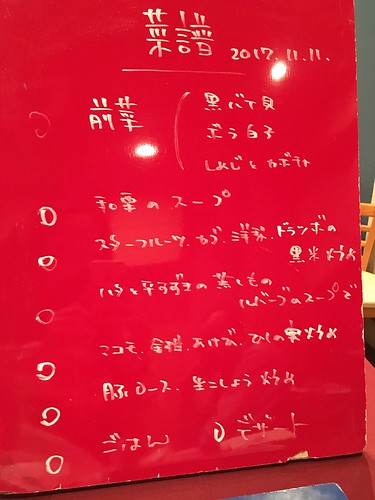 菜譜 2017.11.11.
前菜
黒バイ貝
ボラ白子
しめじとカボチャ
和栗のスープ
スターフルーツ、カブ、洋梨、ドランボの
黒米炒め
ハタと平すずきの蒸しもの
ルバーブのスープで
マコモ、金針、あけび、ひしの実炒め
豚ロース、生こしょう炒め
ごはん
デザート